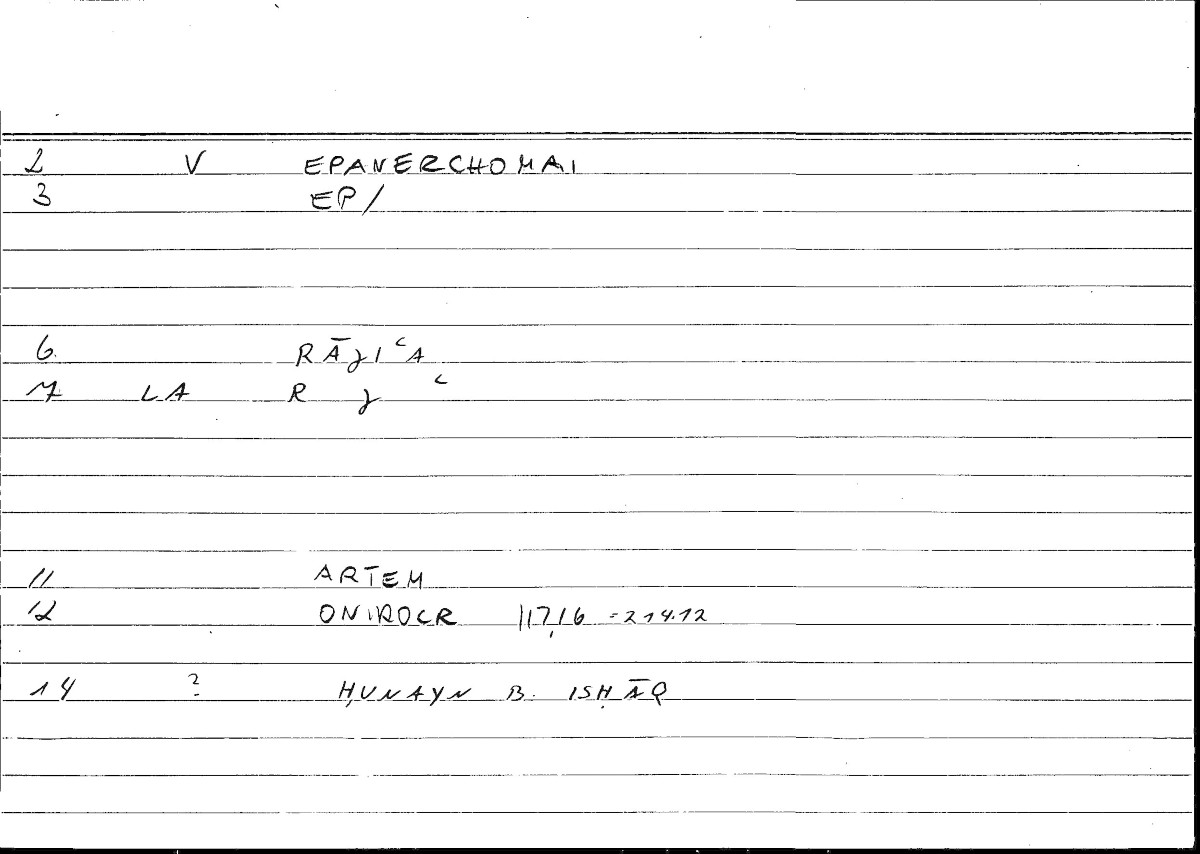 2 V EPANERCHOMAI
3 EP/
6. RĀJIʿA
7 LA R J ʿ
11 ARTEM
12 ONIROCR 117,16 = 214.12
14 ? ḤUNAYN B. ISḤĀQ